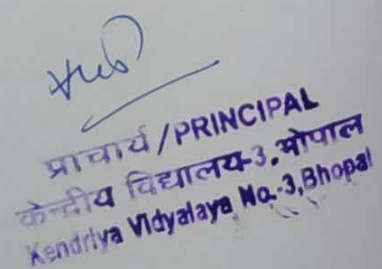 प्राचार्य/PRINCIPAL
केन्द्रीय विद्यालय-3, भोपाल
Kendriya Vidyalaya No.-3, Bhopal